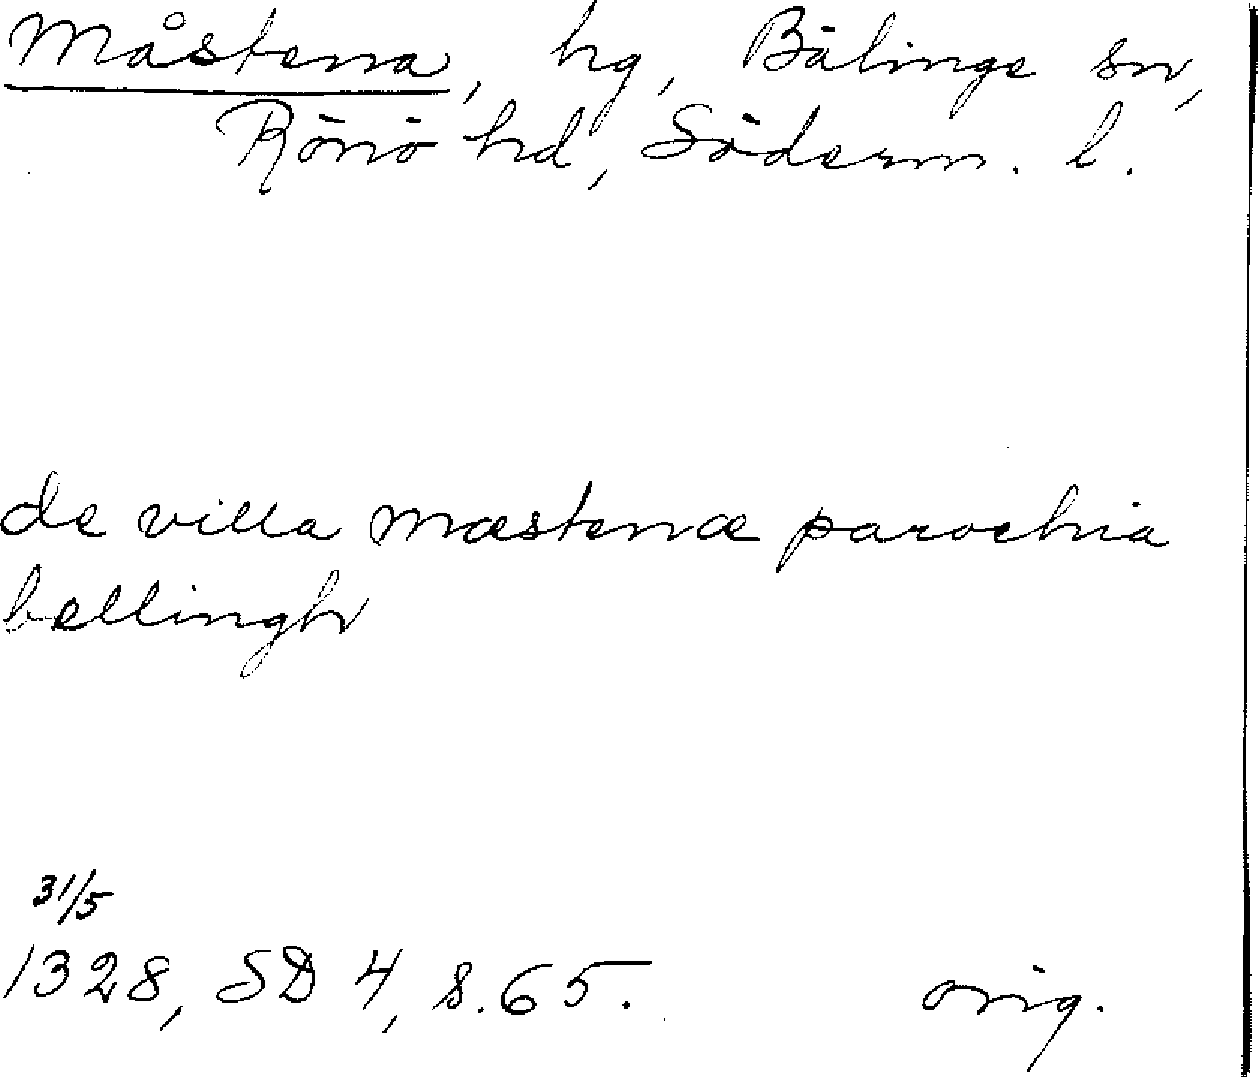 Måstena, hg, Bälinge sn,
Rönö hd, Söderm. l.
de villa mæstenæ parochia
bellingh
31/5
1328, SD 4, s. 65. orig.